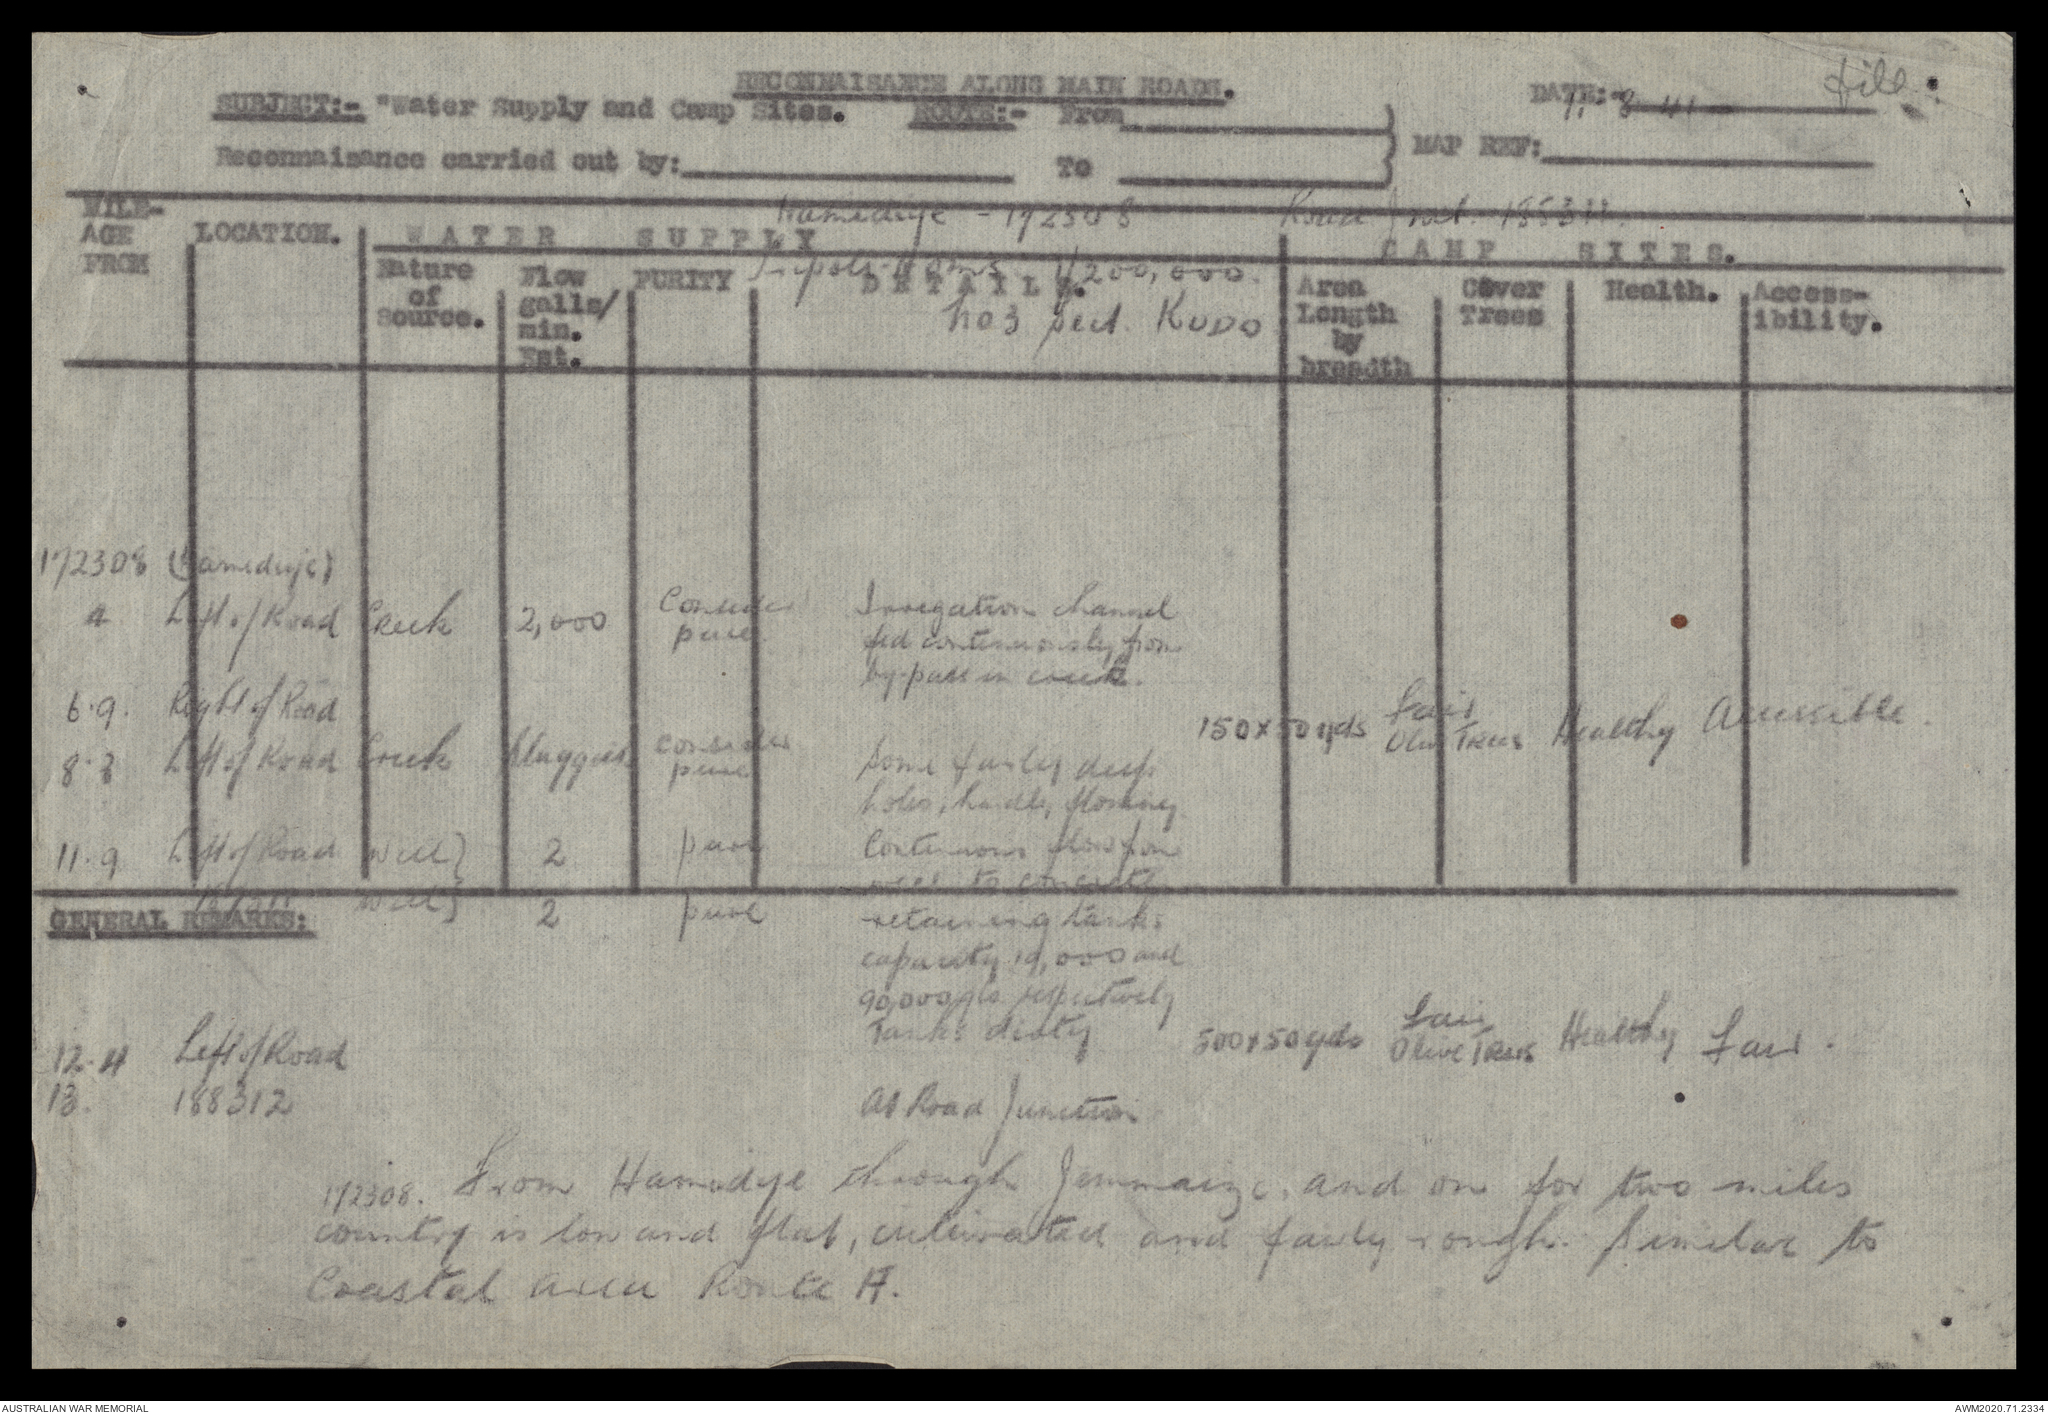 File
RECONNAISANCE ALONG MAIN ROADS.
DATE:- 11-8-41
SUBJECT:- "Water Supply and Camp Sites. ROUTE:- From
MAP REF:
Reconnaisance carried out by: To
Hamediye - 172308 Road Junct. 188312.
Tripoli-Homs 1/200,000.
No 3 Sect. KUDO
MILE-AGE FROM
LOCATION.
WATER SUPPLY
Nature of source.
Flow galls/ min. Est.
PURITY
DETAILS.
CAMP SITES.
Area Length by breadth
Cover Trees
Health.
Access-ibility.
172308 (Hamediye)
4 Left of Road Creek 2,000 Consider pure Irregation channel
fed continuously from
by-pass in creek.
6.9. Right of Road 150x50yds Fair Olive Trees Healthy Accessible.
8.3 Left of Road Creek Sluggish consider pure Some fairly deep
holes, hardly flowing
11.9 Left of Road Well} 2 pure Continuous flow from
well to concrete
Well} 2 pure retaining tanks
capacity 19,000 and
90,000gls respectively
Tanks dirty
GENERAL REMARKS:
12.4 Left of Road 500x50yds Fair Olive Trees Healthy Fair.
13. 188312 At Road Junction
172308. From Hamidye through Jemmaize, and on for two miles
country is low and flat, cultivated and fairly rough. Similar to
Coastal area Route A.
AUSTRALIAN WAR MEMORIAL
AWM2020.71.2334